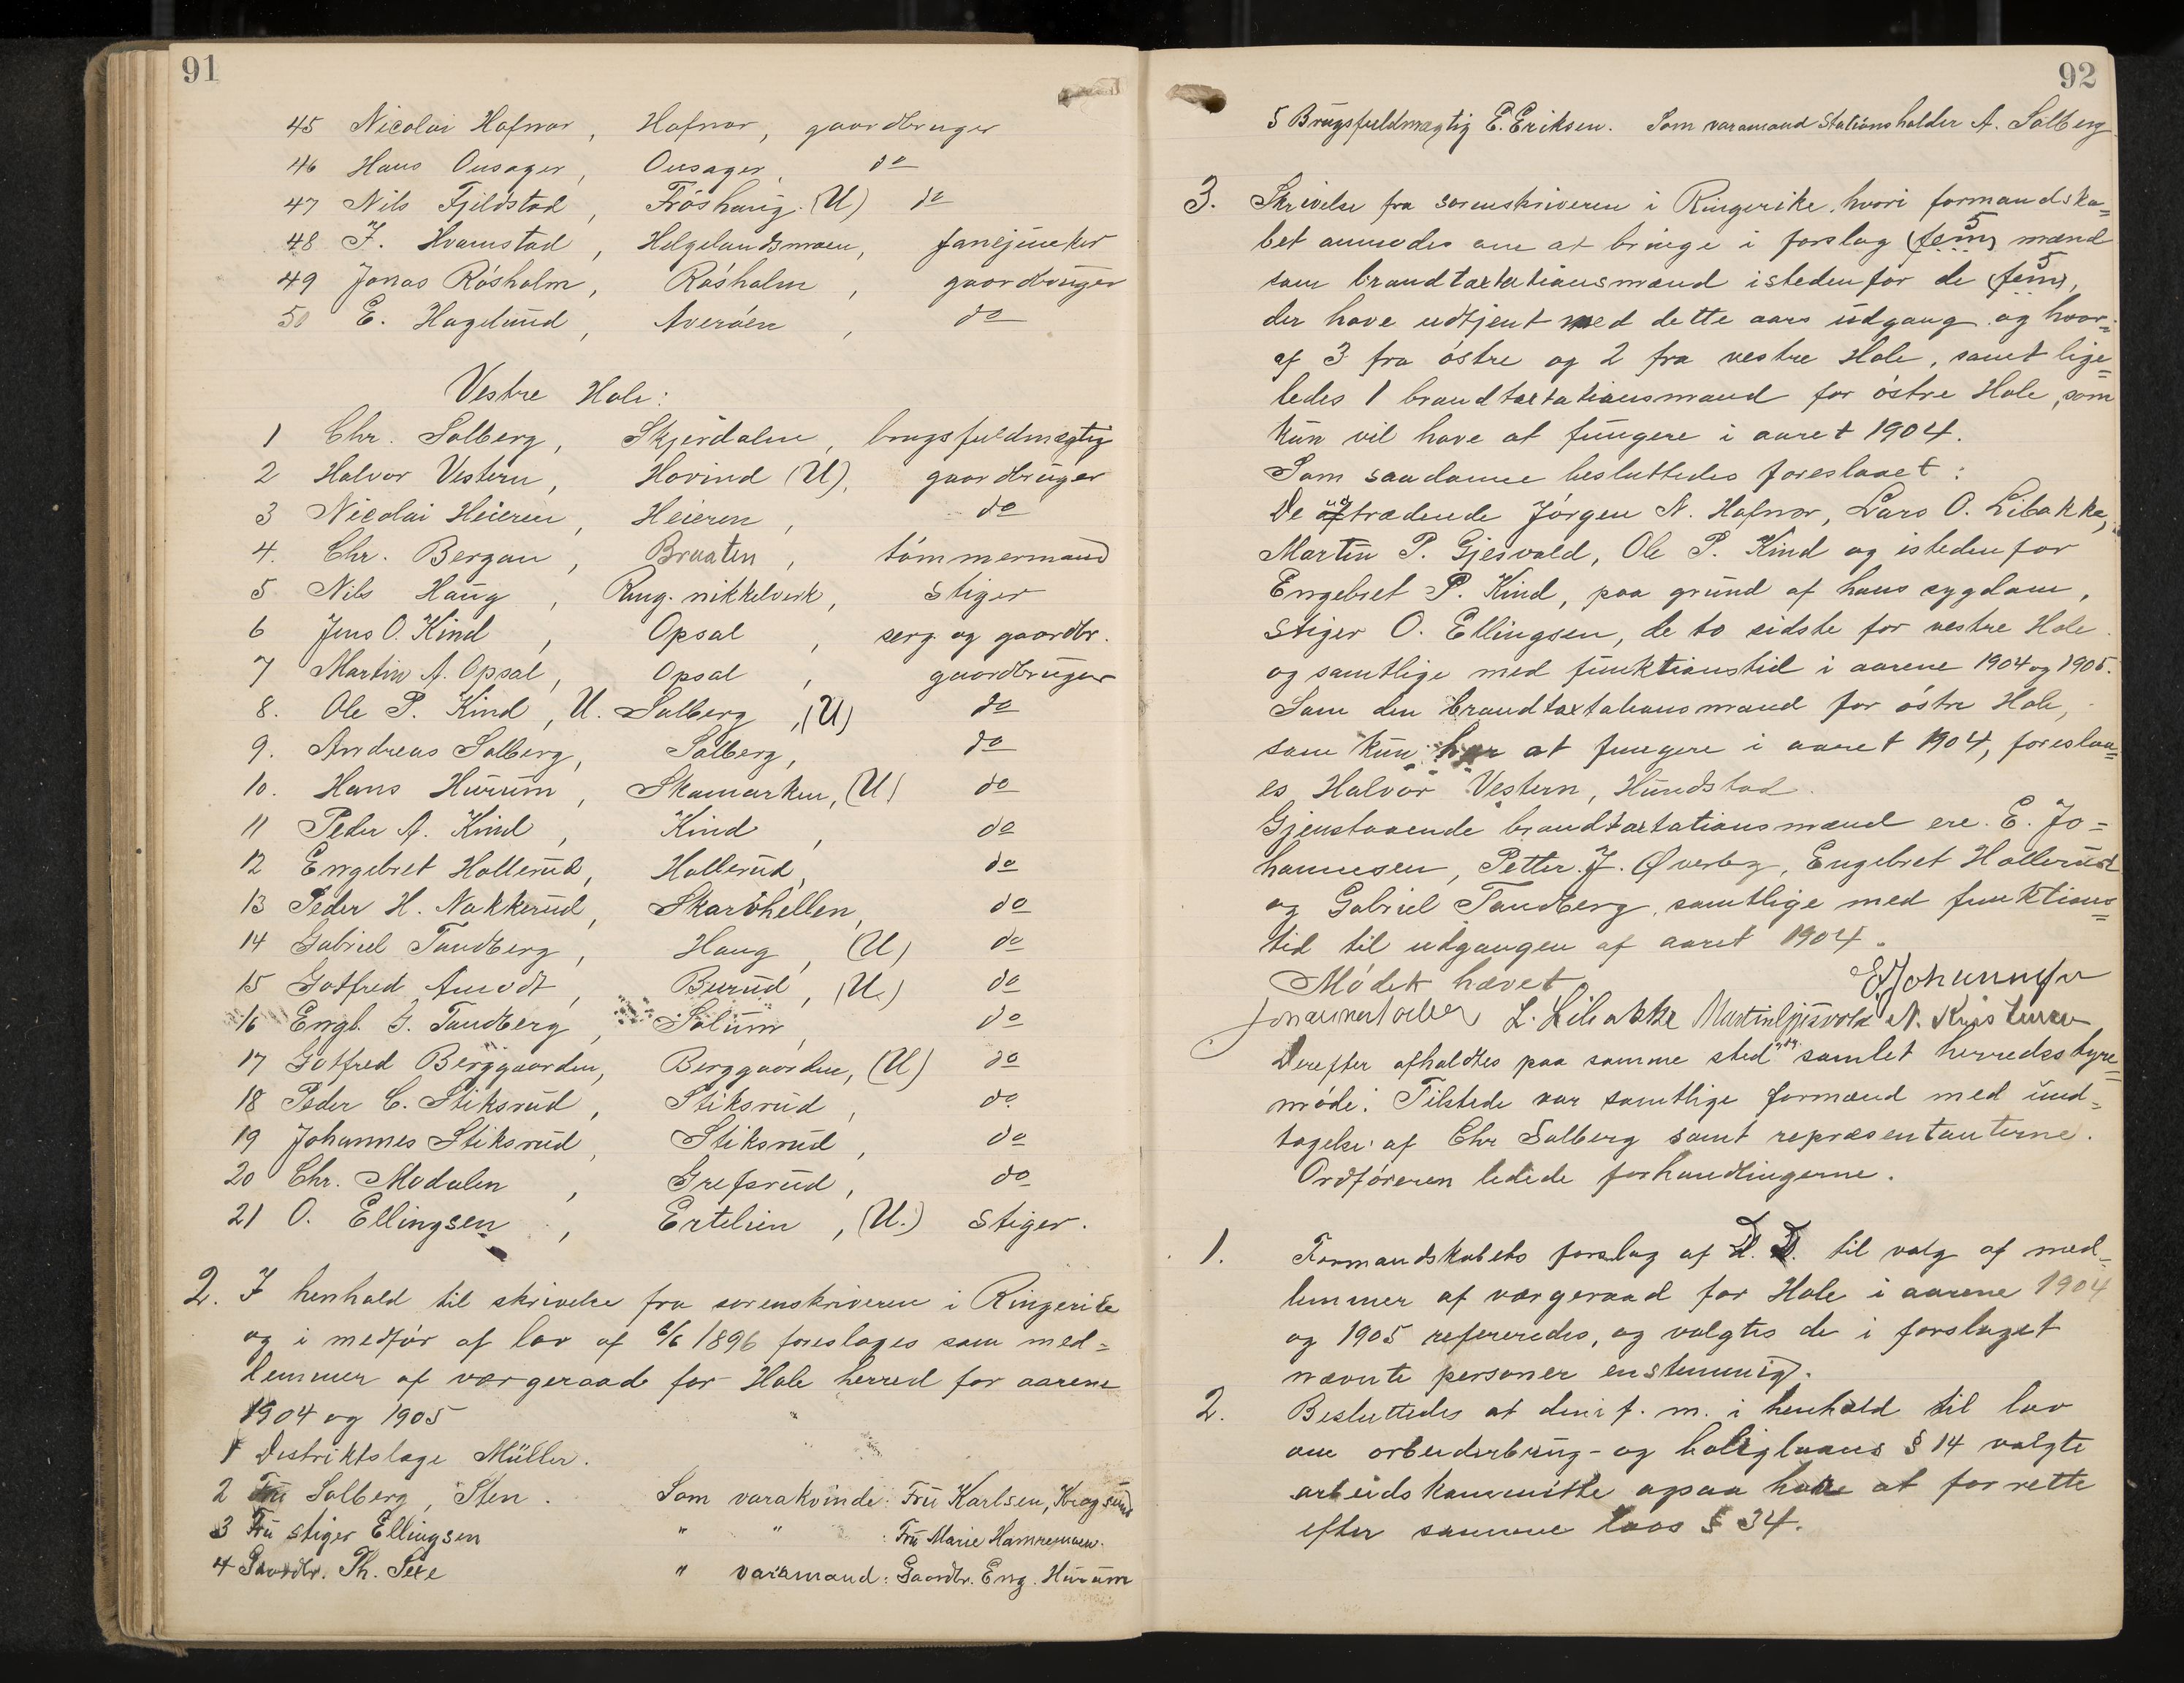 91
45 Nicolai Hafnor, Hafnor, gaardbruger
46 Hans Onsager, Onsager, do
47 Nils Fjeldstad, Fröshaug (U) do
48 J. Hvamstad, Helgelandsmoen, fanejunker
49 Jonas Rösholm, Rösholm, gaardbruger
50 E. Hagelund, Averöen, do
Vestre Hole:
1 Chr. Solberg, Skjerdalen, brugsfuldmægtig
2 Halvor Vestern, Hovind (U), gaardbruger
3 Nicolai Heieren, Heieren, do
4. Chr. Bergan, Braaten, tömmermand
5 Nils Haug, Ring. nikkelverk, stiger
6 Jens O. Kind, Opsal, serg. og gaardbr.
7 Martin A. Opsal, Opsal, gaardbruger
8. Ole P. Kind, U. Solberg, (U) do
9. Andreas Solberg, Solberg, do
10. Hans Hurum, Skamarken, (U) do
11 Peder A. Kind, Kind, do
12 Engebret Hallerud, Hallerud, do
13 Peder H. Nakkerud, Skarvhellen, do
14 Gabriel Tandberg, Haug, (U) do
15 Gotfred Amodt, Burud, (U.) do
16 Engl. G. Tandberg, Solum, do
17 Gotfred Berggaarden, Berggaarden, (U) do
18 Peder C. Stiksrud, Stiksrud, do
19 Johannes Stiksrud, Stiksrud, do
20 Chr. Modalen, Grefsrud, do
21 O. Ellingsen, Ertelien, (U.) stiger.
2. I henhold til skrivelse fra sorenskriveren i Ringerike
og i medför af lov af 6/6 1896 foreslages som med=
lemmer af værgeraad for Hole herred for aarene
1904 og 1905
1 Distriktslæge Müller.
2 Fru Solberg, Sten. Som varakvinde: Fru Karlsen, Krogsund
3 Fru stiger Ellingsen " " : Fru Marie
4 Gaardbr. Th. " varamand: Gaardbr. Eng. Hurum
92
5 Brugsfuldmægtig E. Eriksen. Som varamand Stationsholder A. Solberg
3. Skrivelse fra sorenskriveren i Ringerike, hvori formandska=
bet anmodes om at bringe i forslag (fem) 5 mænd
som brandtaxtationsmænd istedenfor de (fem) 5,
der have udtjent med dette aars udgang og hvor=
af 3 fra östre og 2 fra vestre Hole, samt lige=
ledes 1 brandtaxtationsmand for östre Hole, som
kun vil have at fungere i aaret 1904.
Som saadanne besluttedes foreslaaet:
De udtrædende Jörgen N. Hafnor, Lars O. Libakke,
Martin P. Gjesvold, Ole P. Kind og istedenfor
Engebret P. Kind, paa grund af hans sygdom,
Stiger O. Ellingsen, de to sidste for vestre Hole
og samtlige med funktionstid i aarene 1904 og 1905.
Som den brandtaxtationsmand for östre Hole,
som kun har at fungere i aaret 1904, foreslaa=
es Halvor Vestern, Hundstad.
Gjenstaaende brandtaxtationsmænd ere E. Jo=
hannesen, Petter J. Øverby, Engebret Hallerud
og Gabriel Tandberg, samtlige med funktions=
tid til udgangen af aaret 1904.
Mödet hævet
E. Johannesen
L. Libakke Martin Gjesvold N. Kristensen
Derefter afholdtes paa samme sted samlet herredsstyre=
möde. Tilstede var samtlige formænd med und=
tagelse af Chr Solberg samt repræsentanterne.
Ordföreren ledede forhandlingerne.
1. Formandskabets forslag af D. D. til valg af med=
lemmer af værgeraad for Hole i aarene 1904
og 1905 refereredes, og valgtes de i forslaget
nævnte personer enstemmig.
2. Besluttedes at den i f. m. i henhold til lov
om arbeiderbrug- og boliglaans § 14 valgte
arbeidskommitte ogsaa have at forrette
efter samme lovs § 34.